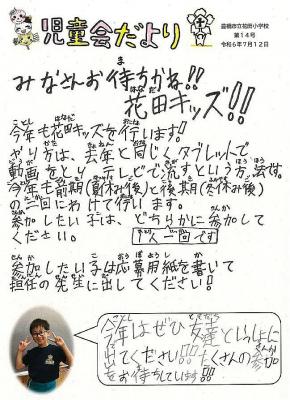 児童会だより
豊橋市立花田小学校
第14号
令和6年7月12日
みなさんお待ちかね!!
花田キッズ!!
今年も花田キッズを行います!
やり方は、去年と同じくタブレットで
動画をとり、テレビで流すという方法です。
今年も前期(夏休み後)と後期(冬休み後)
の2回にわけて行います。
参加したい子は、どちらかに参加して
ください。
1人一回です
参加したい子は応募用紙を書いて
担任の先生に出してください!
今年はぜひ友達といっしょに
出てください!!たくさんの参加
をお待ちしています!!